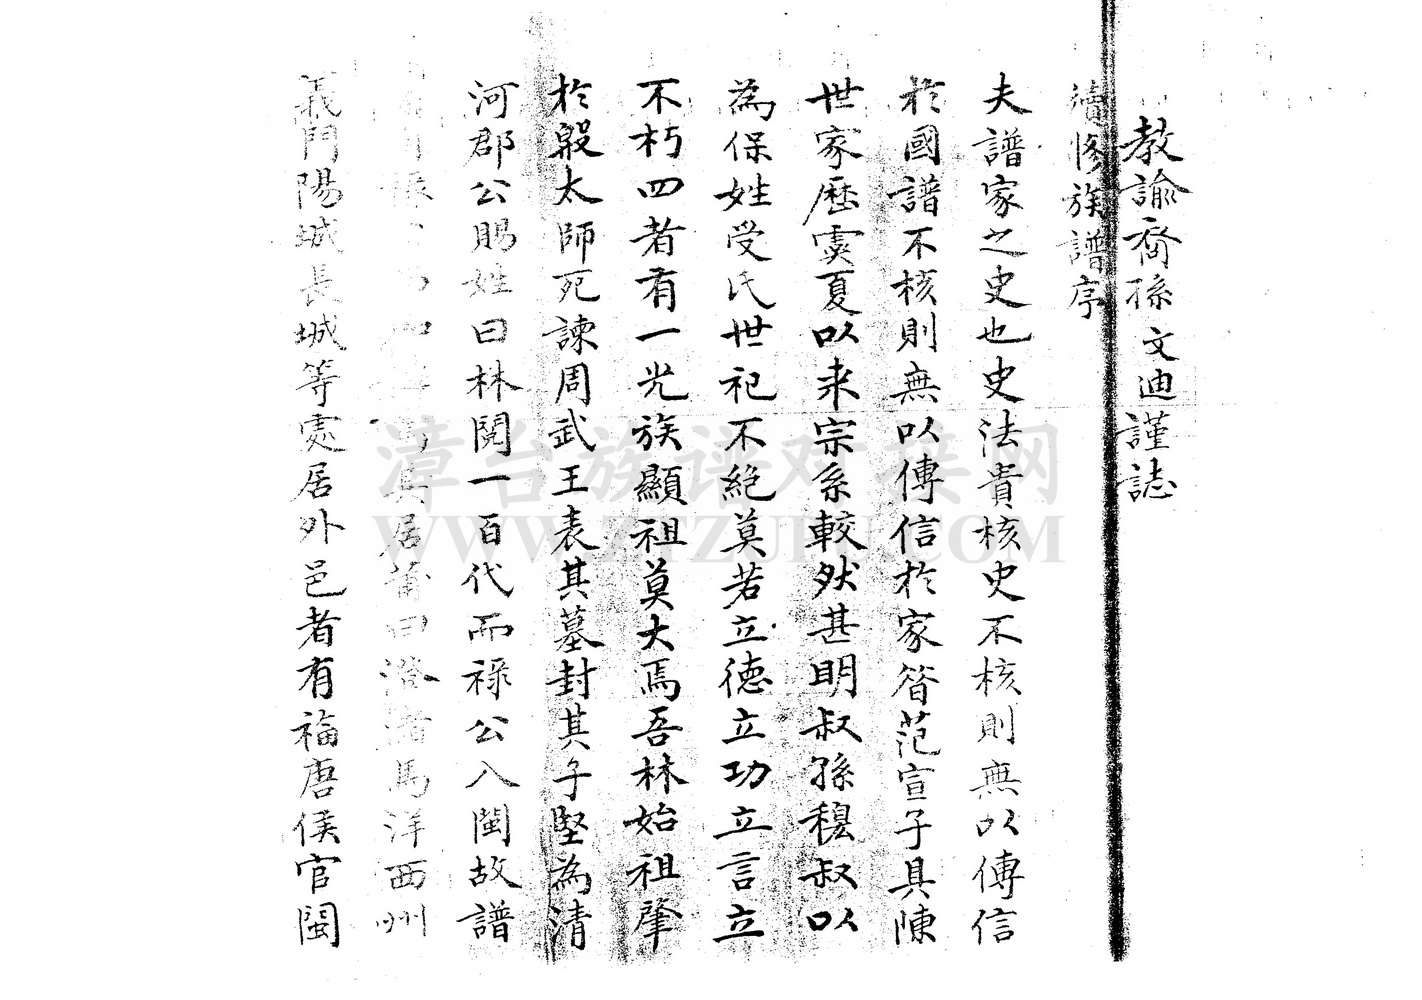 教諭裔孫文迪謹誌
續修族譜序
夫譜家之史也史法貴核史不核則無以傳信
於國譜不核則無以傳信於家昝范宣子具陳
世家歷虞夏以来宗系較然甚明叔孫穆叔以
為保姓受氏世祀不絶莫若立德立功立言立
不朽四者有一光族顯祖莫大焉吾林始祖肇
於殷太師死諫周武王表其墓封其子堅為清
河郡公賜姓曰林閱一百代而祿公入閩故譜
其居莆曰澄渚馬洋西州
義門陽城長城等處居外邑者有福唐侯官閩
漳台族谱对接网
WWW.ZTZUPU.COM